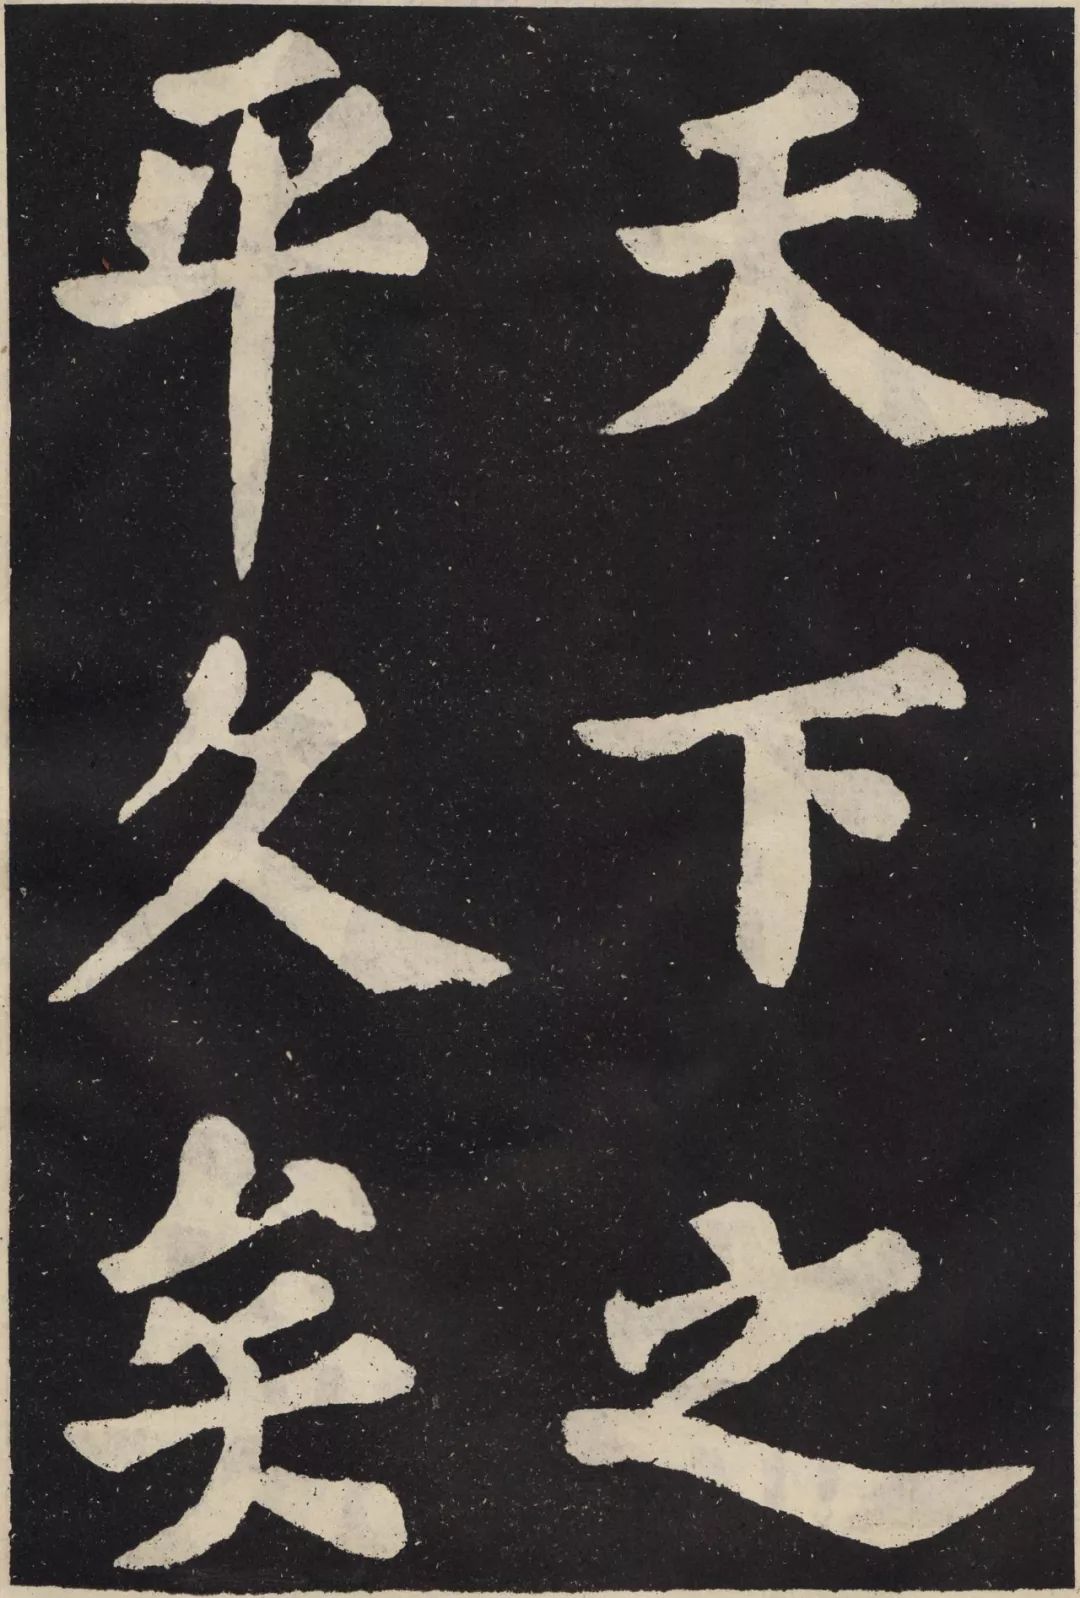 天下之
平久矣